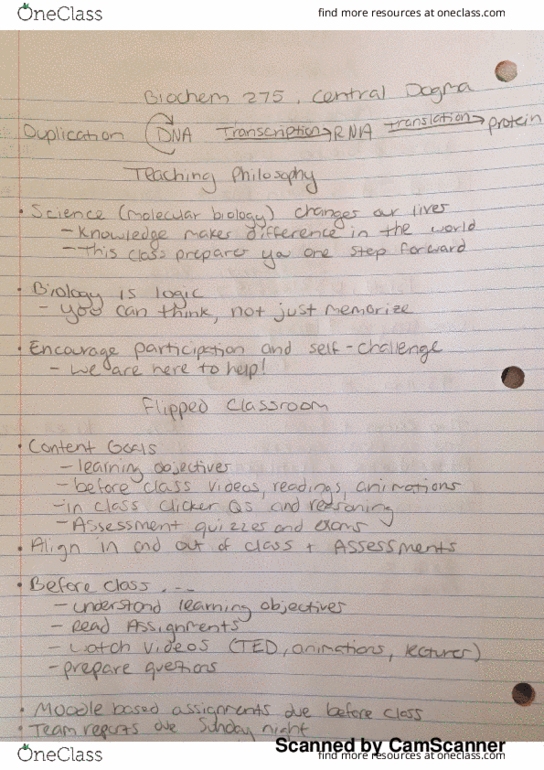 OneClass find more resources at oneclass.com
Biochem 275. Central Dogma
Duplication DNA Transcription→ RNA translation→ protein
Teaching Philosophy
• Science (molecular biology) changes our lives
- Knowledge makes difference in the world
- this class prepares you one step forward
• Biology is logic
- you can think, not just memorize
• Encourage participation and self-challenge
- we are here to help!
Flipped Classroom
• Content Goals
- learning objectives
- before class videos, readings, animations
- in class clicker Qs and reasoning
- Assessment quizzes and exams
• Align in and out of class + Assessments
• Before class . --
- understand learning objectives
- Read Assignments
- watch videos (TED, animations, lectures)
- prepare questions
• Moodle based assignments due before class
• Team reports due Sunday night
Scanned by CamScanner
OneClass find more resources at oneclass.com